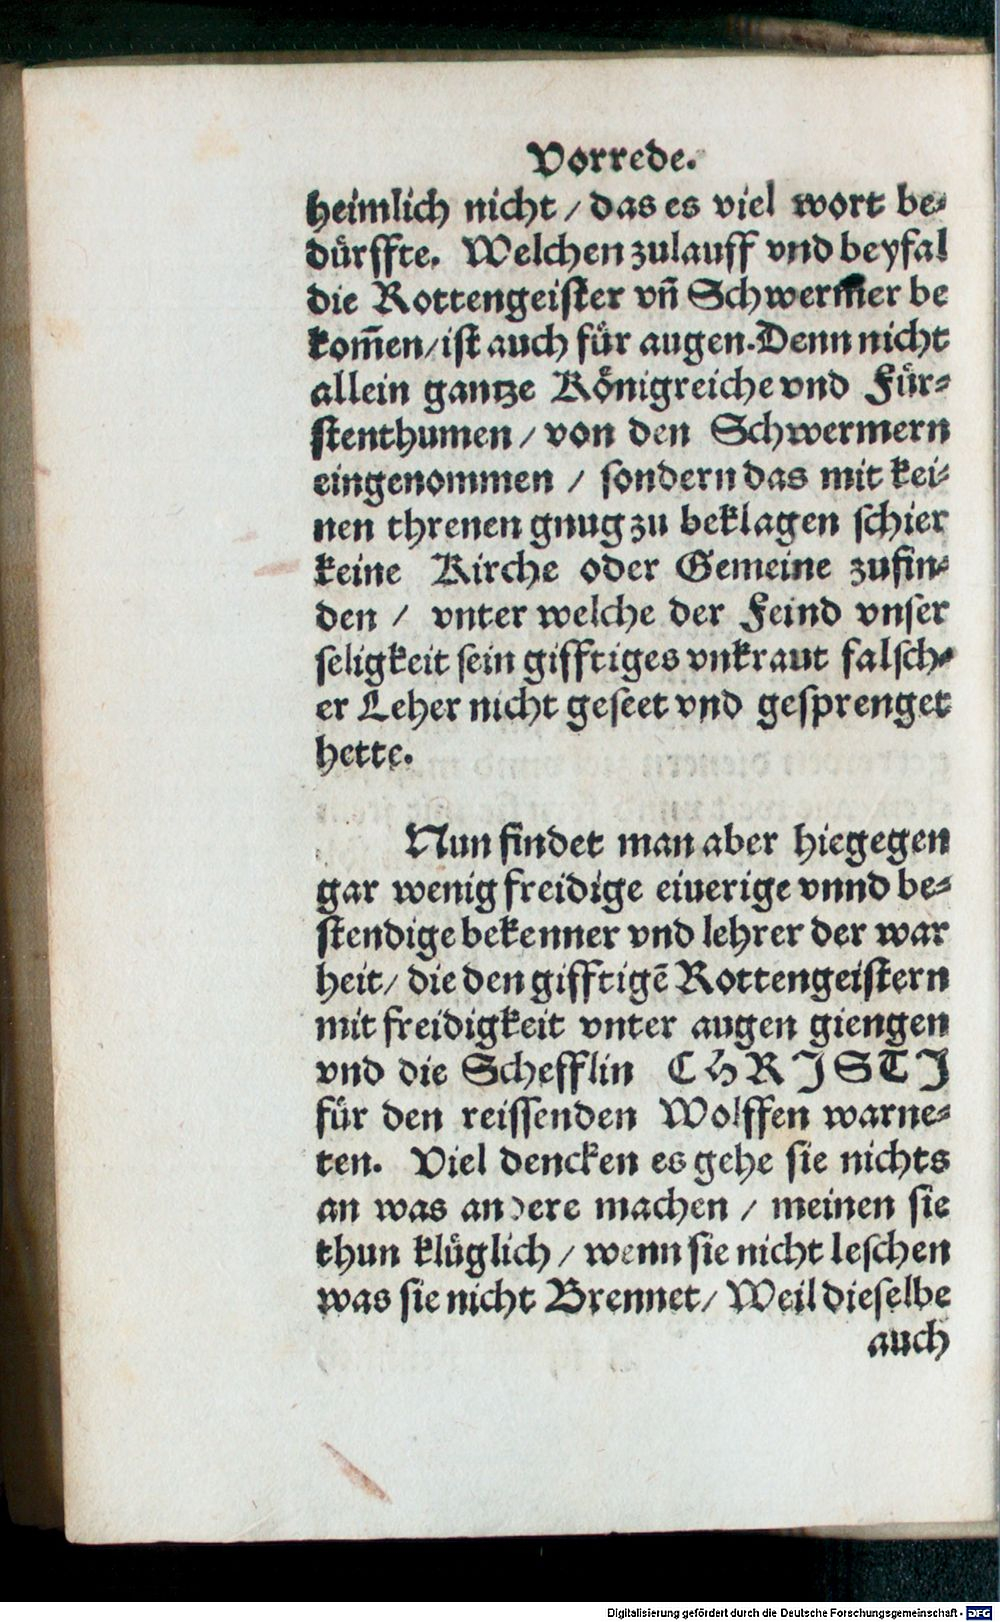 Vorrede.
heimlich nicht / das es viel wort be-
dürffte. Welchen zulauff vnd beyfal
die Rottengeister vñ Schwermer be
kom̃en / ist auch für augen. Denn nicht
allein gantze Königreiche vnd Für-
stenthumen / von den Schwermern
eingenommen / sondern das mit kei-
nen threnen gnug zu beklagen schier
keine Kirche oder Gemeine zufin-
den / vnter welche der Feind vnser
seligkeit sein gifftiges vnkraut falsch-
er Leher nicht geseet vnd gesprenget
hette.
Nun findet man aber hiegegen
gar wenig freidige eiuerige vnnd be-
stendige bekenner vnd lehrer der war
heit / die den gifftigē Rottengeistern
mit freidigkeit vnter augen giengen
vnd die Schefflin CHRISTI
für den reissenden Wolffen warne-
ten. Viel dencken es gehe sie nichts
an was andere machen / meinen sie
thun klüglich / wenn sie nicht leschen
was sie nicht Brennet / Weil dieselbe
auch
Digitalisierung gefördert durch die Deutsche Forschungsgemeinschaft - DFG